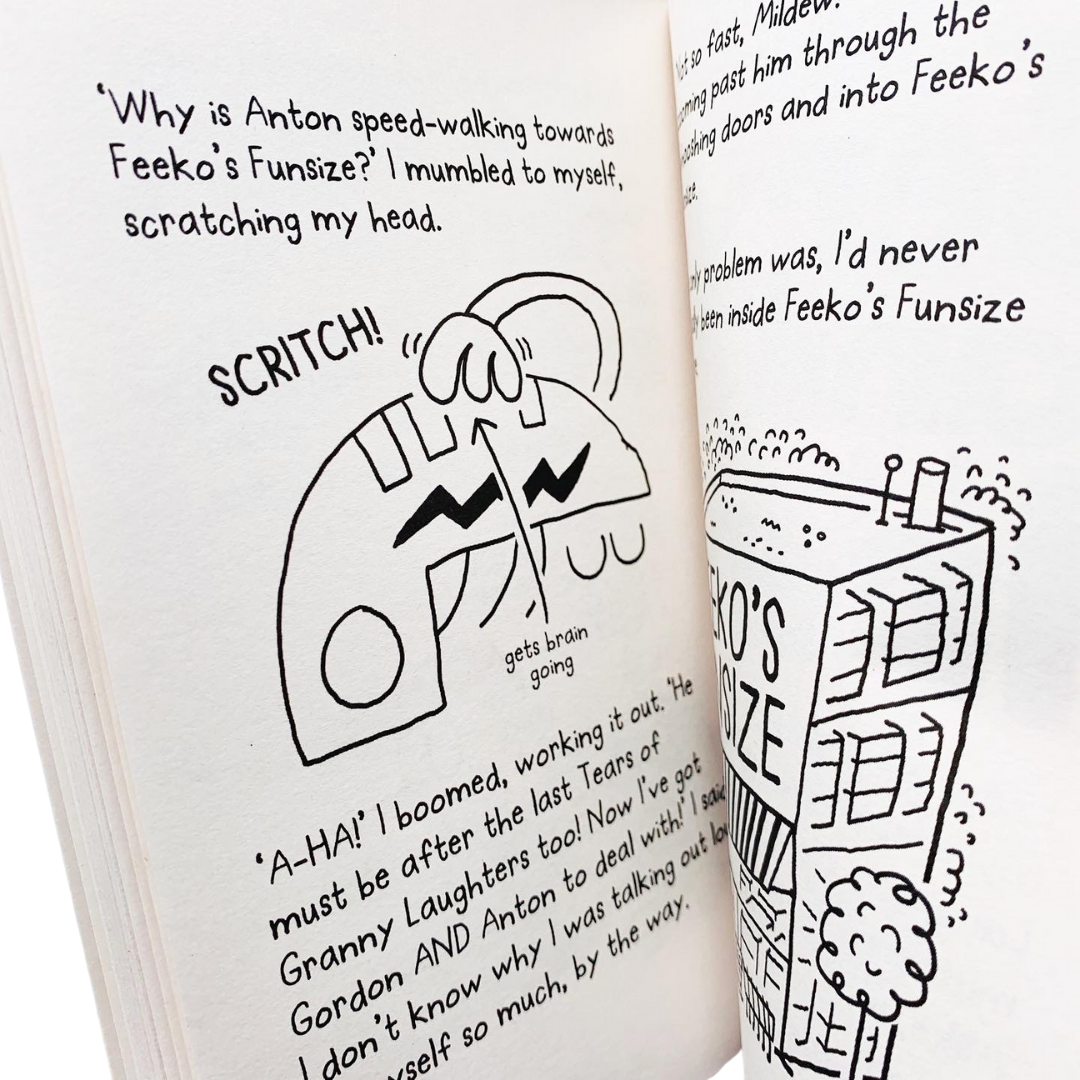 ‘Why is Anton speed-walking towards
Feeko’s Funsize?’ I mumbled to myself,
scratching my head.
SCRITCH!
gets brain
going
‘A-HA!’ I boomed, working it out. ‘He
must be after the last Tears of
Granny Laughters too! Now I’ve got
Gordon AND Anton to deal with!’ I said
I don’t know why I was talking out
so much, by the way.
so fast, Mildew!
past him through the
doors and into Feeko’s
problem was, I’d never
been inside Feeko’s Funsize
EKO’S
SIZE